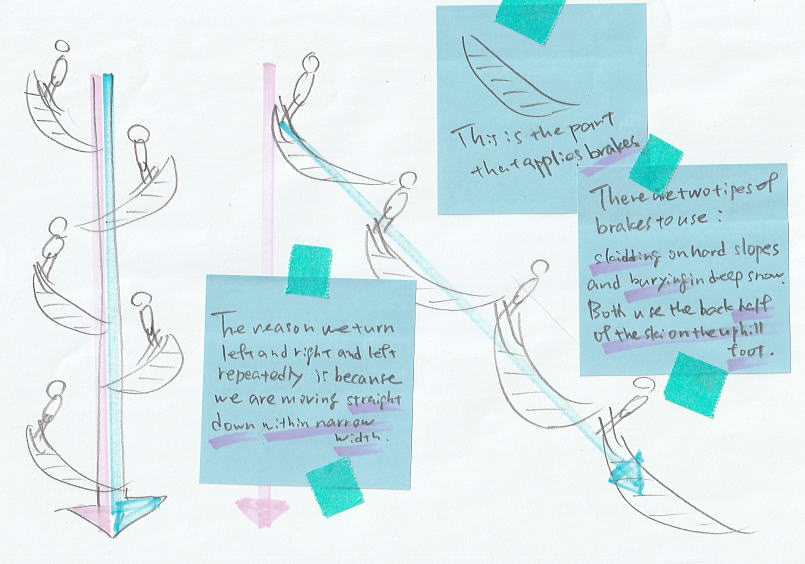 This is the part
that applies brakes
There are two tipes of
brakes to use :
skidding on hard slopes
and burying in deep snow.
Both use the back half
of the ski on the uphill
foot.
The reason we turn
left and right and left
repeatedly is because
we are moving straight
down within narrow
width.